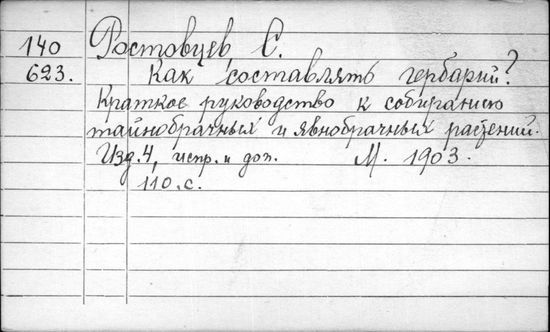 140 Ростовцев С.
623. Как составлять гербарий?
Краткое руководство к собиранию
тайнобрачных и явнобрачных растений.
Изд. 4, испр. и доп. М. 1903.
110.с.